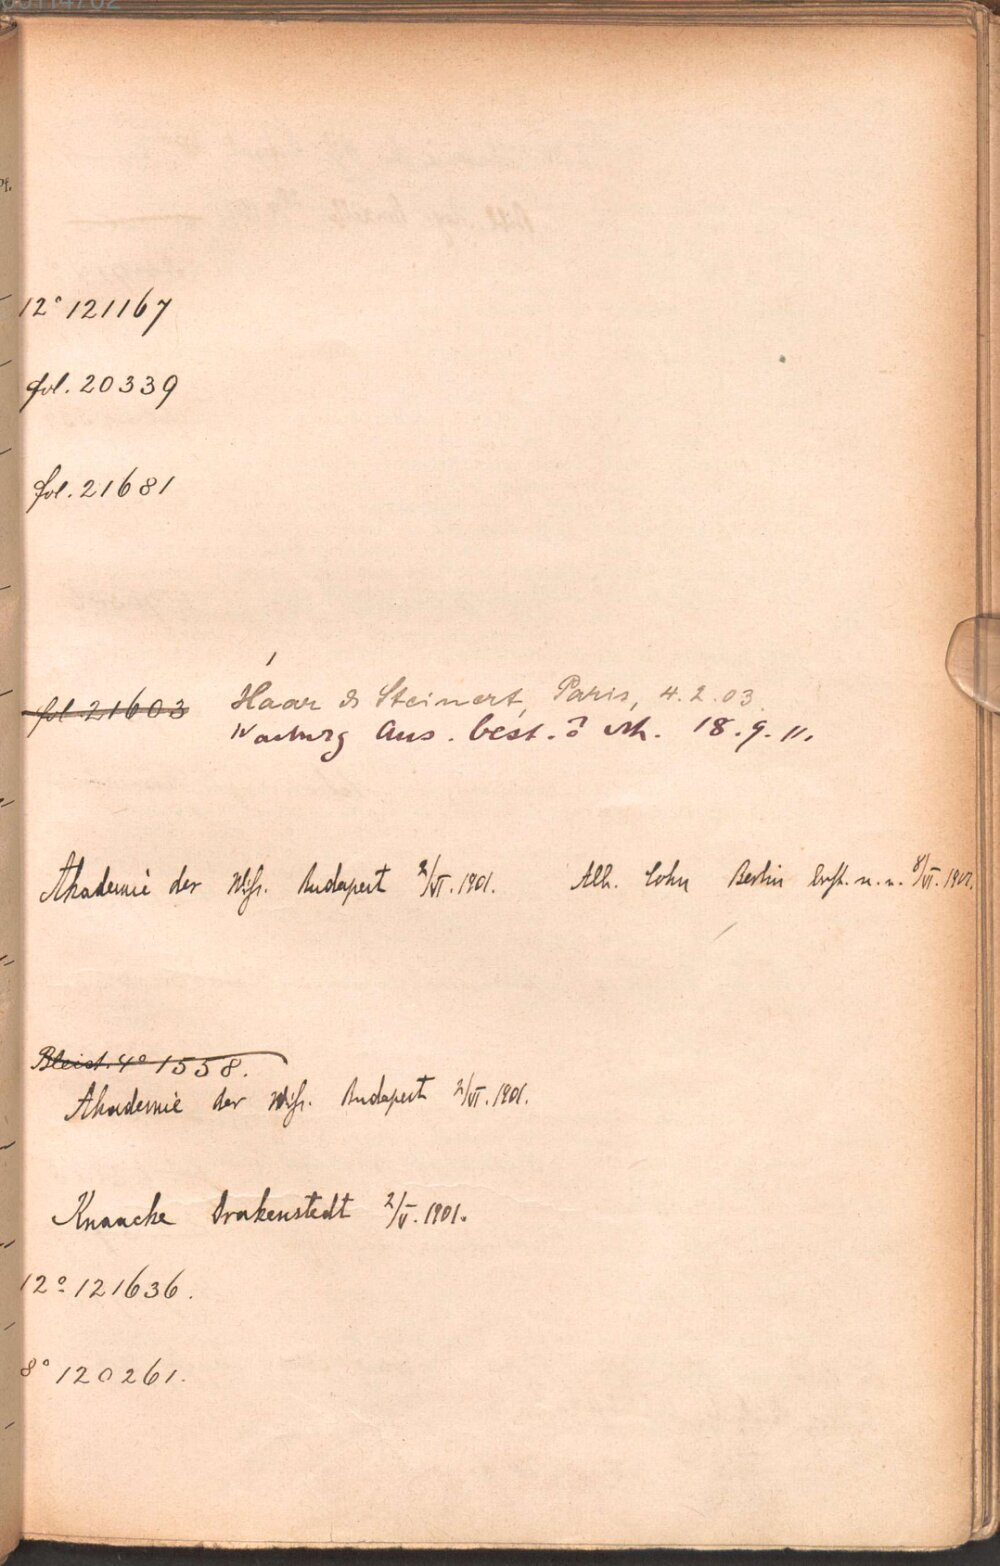 12° 121167
fol. 20339
fol. 21681
fol. 21603 Haar & Steinert, Paris, 4.2.03.
Warburg Aus. best. 18.9.11.
Akademie der Wiss. Budapest 2/VI.1901. Alb. Cohn Berlin n. n. 8/VI.1901.
Bleist. 4° 1558.
Akademie der Wiss. Budapest 2/VI.1901.
Knaacke Drakenstedt 2/V.1901.
12° 121636.
8° 120261.